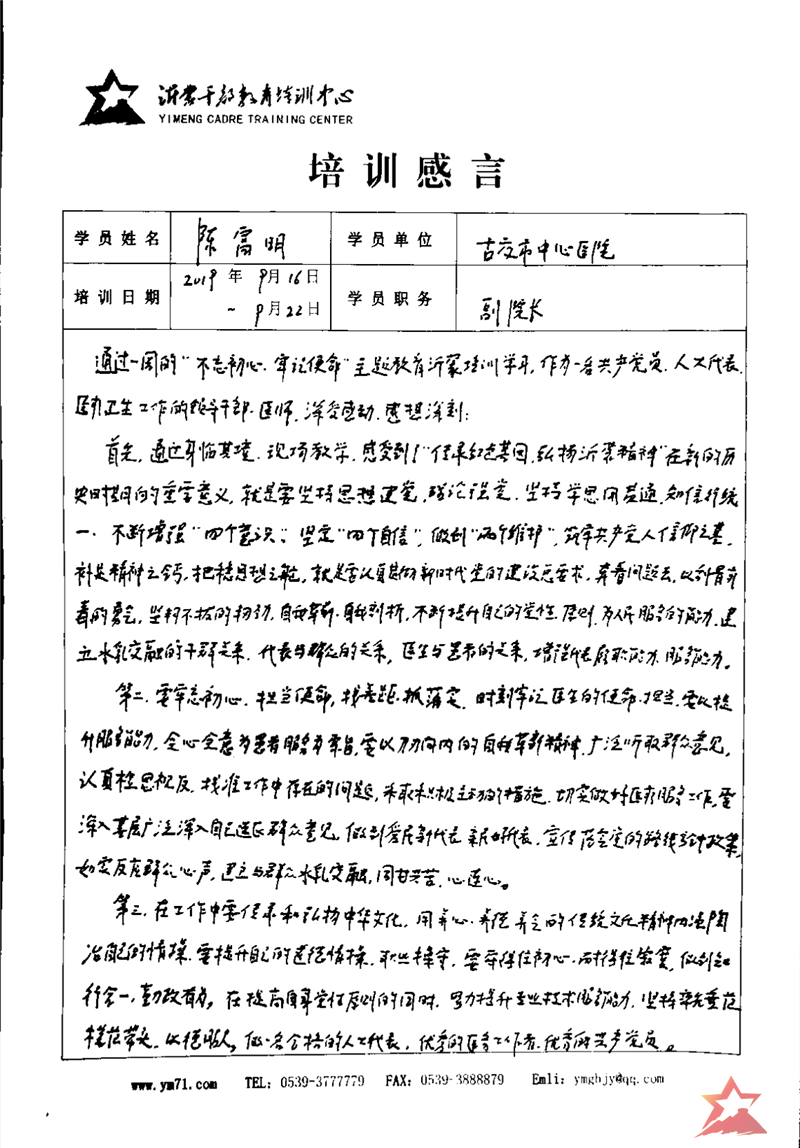 沂蒙干部教育培训中心
YIMENG CADRE TRAINING CENTER
培训感言
学员姓名 陈富明 学员单位 古交市中心医院
培训日期 2019年9月16日 ~9月22日 学员职务 副院长
通过一周的“不忘初心、牢记使命”主题教育沂蒙培训学习,作为一名共产党员、人大代表、
医疗卫生工作的领导干部、医师,深受感动、感想深刻:
首先,通过身临其境、现场教学,感受到了“传承红色基因,弘扬沂蒙精神”在新的历
史时期的重要意义,就是要坚持思想建党、理论强党,坚持学思用贯通、知信行统
一,不断增强“四个意识”、坚定“四个自信”,做到“两个维护”,筑牢共产党人信仰之基、
补足精神之钙、把稳思想之舵,就是要认真贯彻新时代党的建设总要求,奔着问题去,以刮骨疗
毒的勇气,坚韧不拔的韧劲,自我革新、自我剖析,不断提升自己的党性、原则、为人民服务的能力,建
立水乳交融的干群关系、代表与群众的关系,医生与患者的关系,增强代表履职能力、服务能力。
第二、要牢志初心、担当使命,找差距、抓落实,时刻牢记医生的使命、担当,要以提
升服务能力,全心全意为患者服务为宗旨,要以刀刃向内的自我革新精神,广泛听取群众意见,
认真检思视反,找准工作中存在的问题,采取积极主动的措施,切实做好医疗服务工作,要
深入基层广泛深入自己选区群众意见,做到爱民新代表、亲民好代表,宣传落实党的路线方针政策,
如实反应群众心声,建立与群众水乳交融、同甘共苦、心连心。
第三、在工作中要传承和弘扬中华文化,用养心、养德、养气的传统文化精神内涵陶
冶自己的情操,要提升自己的道德情操、职业操守,要守得住初心、耐得住寂寞,做到知
行合一、勤政有为,在提高自身党性原则的同时,努力提升专业技术服务能力,坚持率先垂范
模范带头,以德服人,做一名合格的人大代表、优秀的医务工作者、优秀的共产党员。
www.ym71.com TEL: 0539-3777779 FAX: 0539-3888879 Emli: ymgbjy@qq.com